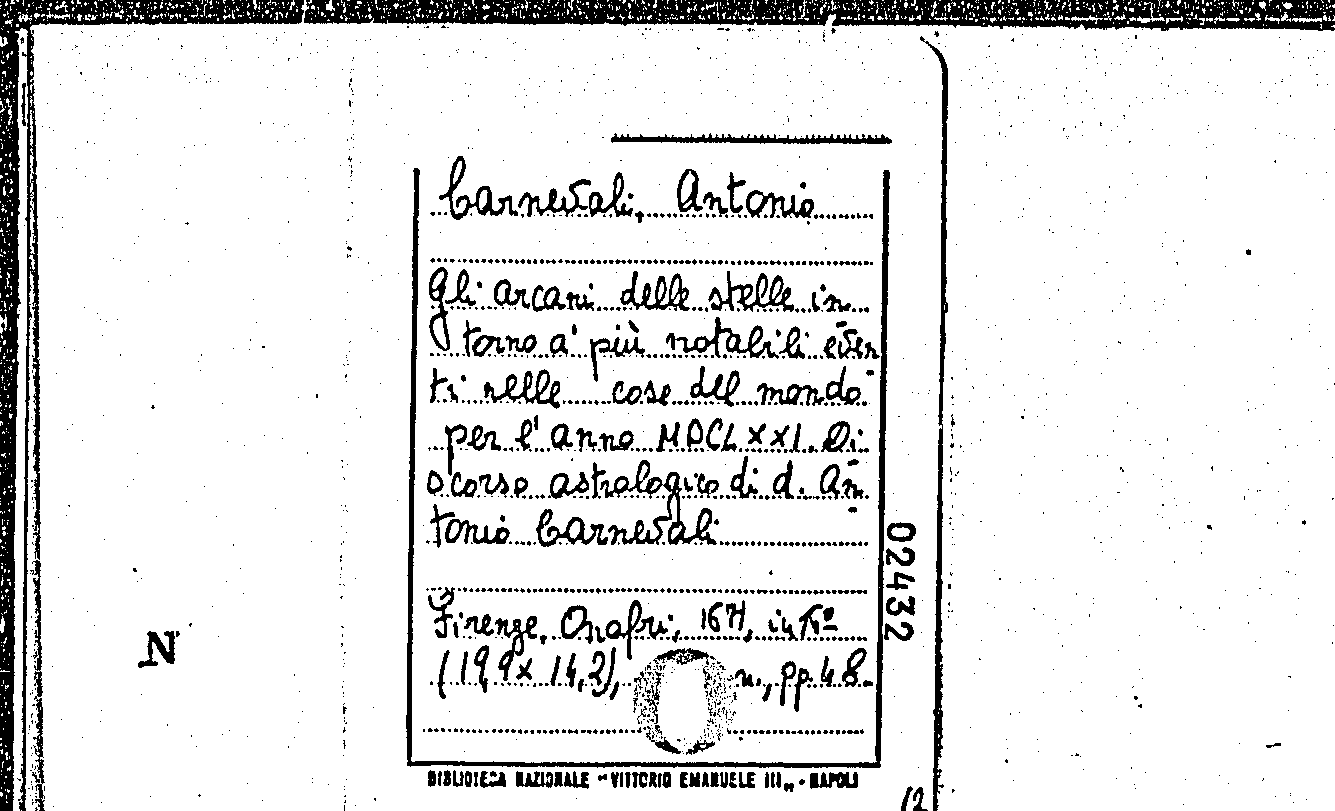 Carnevali, Antonio
Gli arcani delle stelle in-
torno a' più notabili even-
ti nelle cose del mondo
per l'anno MDCLXXI. Di-
scorso astrologico di d. An-
tonio Carnevali
Firenze, Onofri, 1671, in 4º
(19,9 x 14,2), n., pp. 48.
BIBLIOTECA NAZIONALE "VITTORIO EMANUELE III" - NAPOLI
02432
N
12